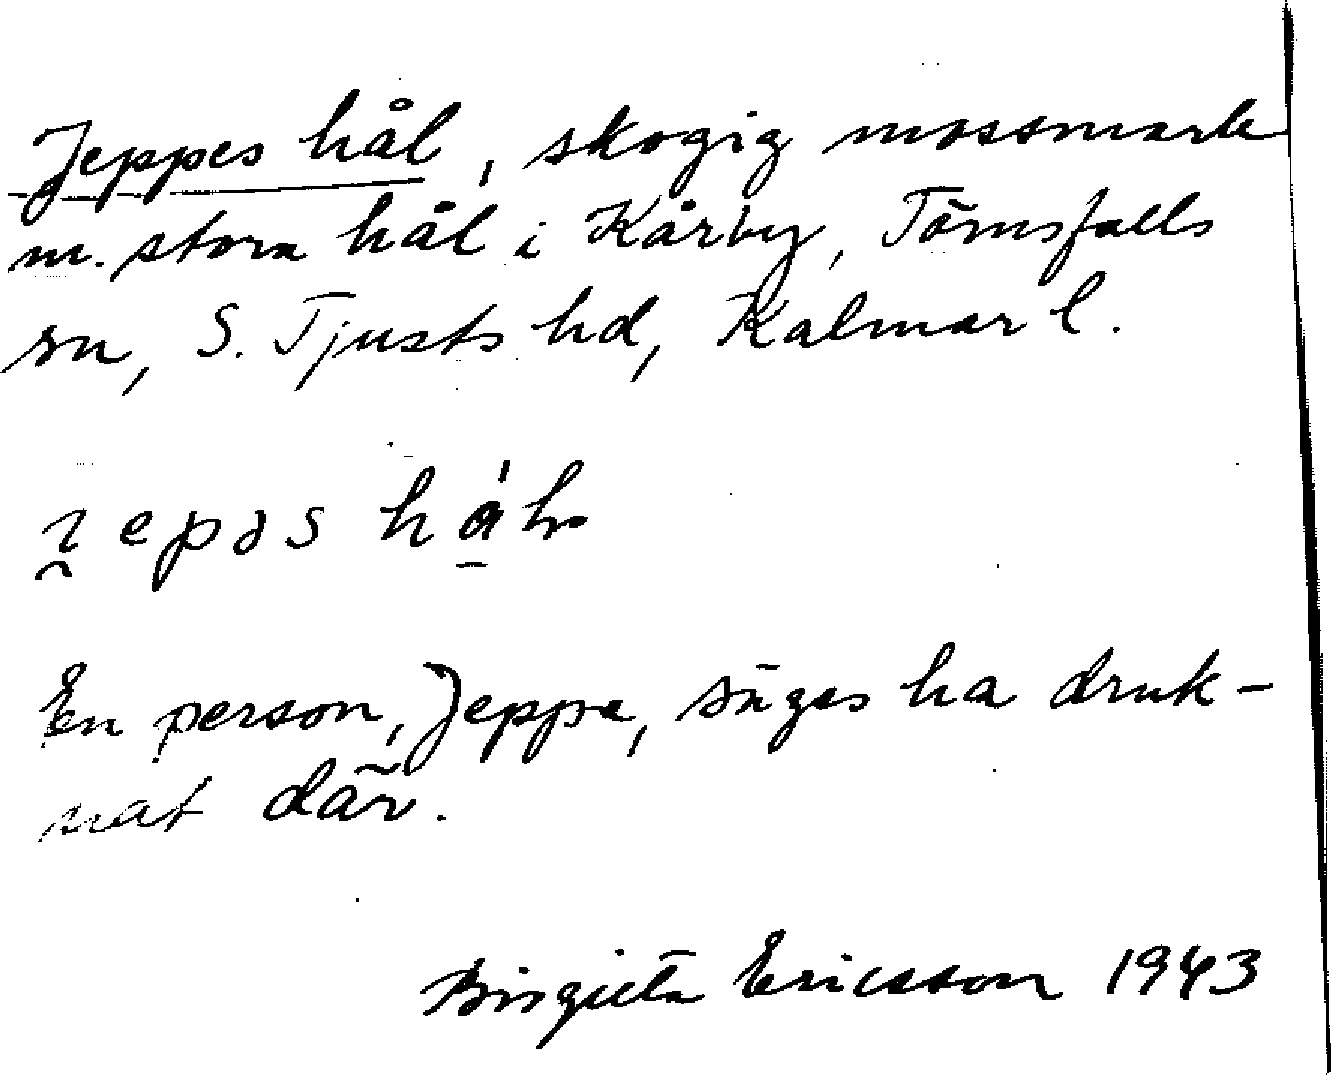 Jeppes hål, skogig mossmark
m. stora hål i Kårby, Törnsfalls
sn, S. Tjusts hd, Kalmar l.
En person, Jeppe, säges ha druk-
nat där.
Birgitta Ericsson 1943